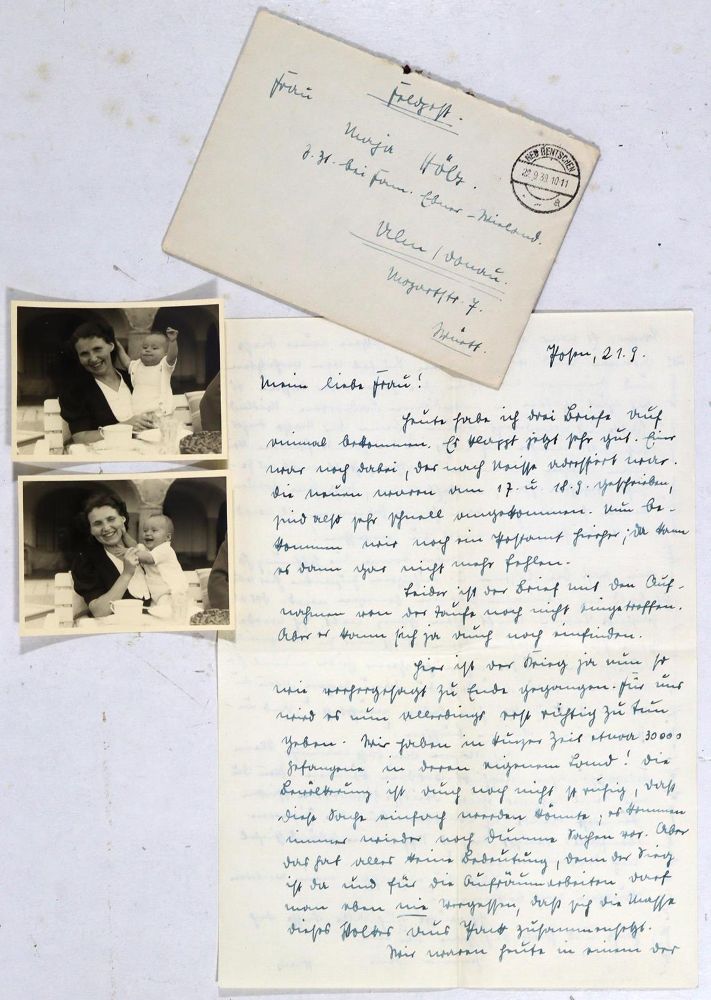 Feldpost.
Frau
Maja Hölz.
z. Zt. bei Fam. Ebner-Wieland.
Ulm / Donau.
Mozartstr. 7.
Württ.
NEU BENTSCHEN
22.9.39.10-11
a
Posen, 21.9.
Meine liebe Frau!
Heute habe ich drei Briefe auf
einmal bekommen. Es klappt jetzt sehr gut. Einer
war noch dabei, der nach Neisse adressiert war.
Die neuen waren am 17. u. 18.9. geschrieben,
sind also sehr schnell angekommen. Nun be-
kommen wir noch ein Postamt hierher; da kann
es dann gar nicht mehr fehlen.
Leider ist der Brief mit den Auf-
nahmen von der Taufe noch nicht eingetroffen.
Aber er kann sich ja auch noch einfinden.
Hier ist der Krieg ja nun so
wie vorhergesagt zu Ende gegangen. Für uns
wird es nun allerdings erst richtig zu tun
geben. Wir haben in kurzer Zeit etwa 30000
Gefangene in deren eigenem Land! Die
Bevölkerung ist auch noch nicht so ruhig, daß
diese Sache einfach werden könnte; es kommen
immer wieder noch dumme Sachen vor. Aber
das hat alles keine Bedeutung, denn der Sieg
ist da und für die Aufräumarbeiten darf
man eben nie vergessen, daß sich die Masse
dieses Volkes aus Pack zusammensetzt.
Wir waren heute in einem der